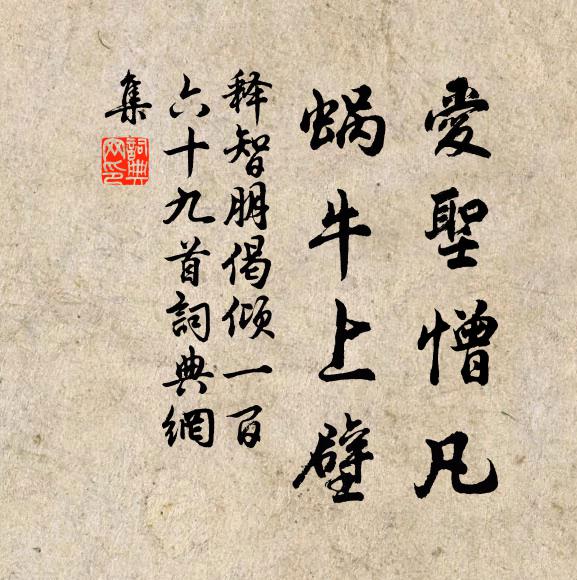 愛聖憎凡
蝸牛上壁
释智朋偈倾一百
六十九首詞典網
集
詞典網印